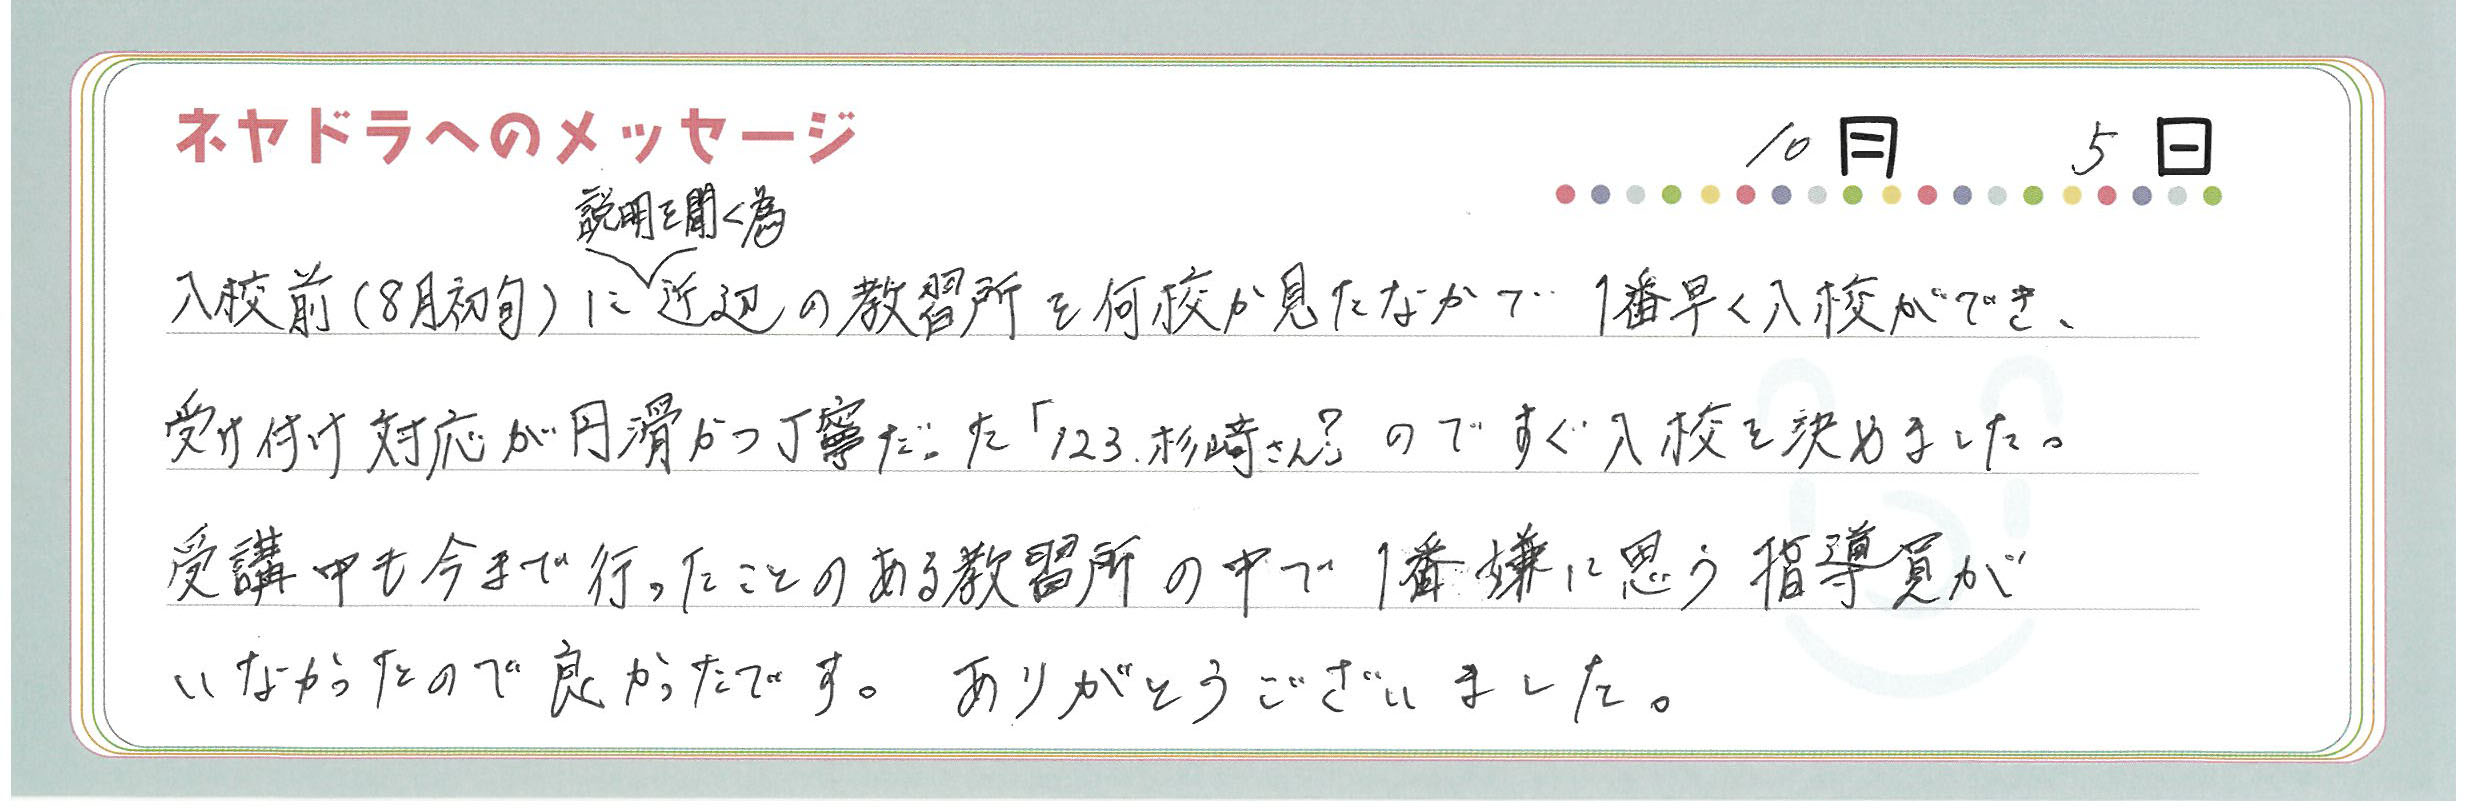 ネヤドラへのメッセージ
10月 5日
説明を聞く為
入校前(8月初旬)に近辺の教習所を何校か見たなかで1番早く入校ができ、
受け付け対応が円滑かつ丁寧だった「123.杉崎さん?」のですぐ入校を決めました。
受講中も今まで行ったことのある教習所の中で1番嫌に思う指導員が
いなかったので良かったです。ありがとうございました。